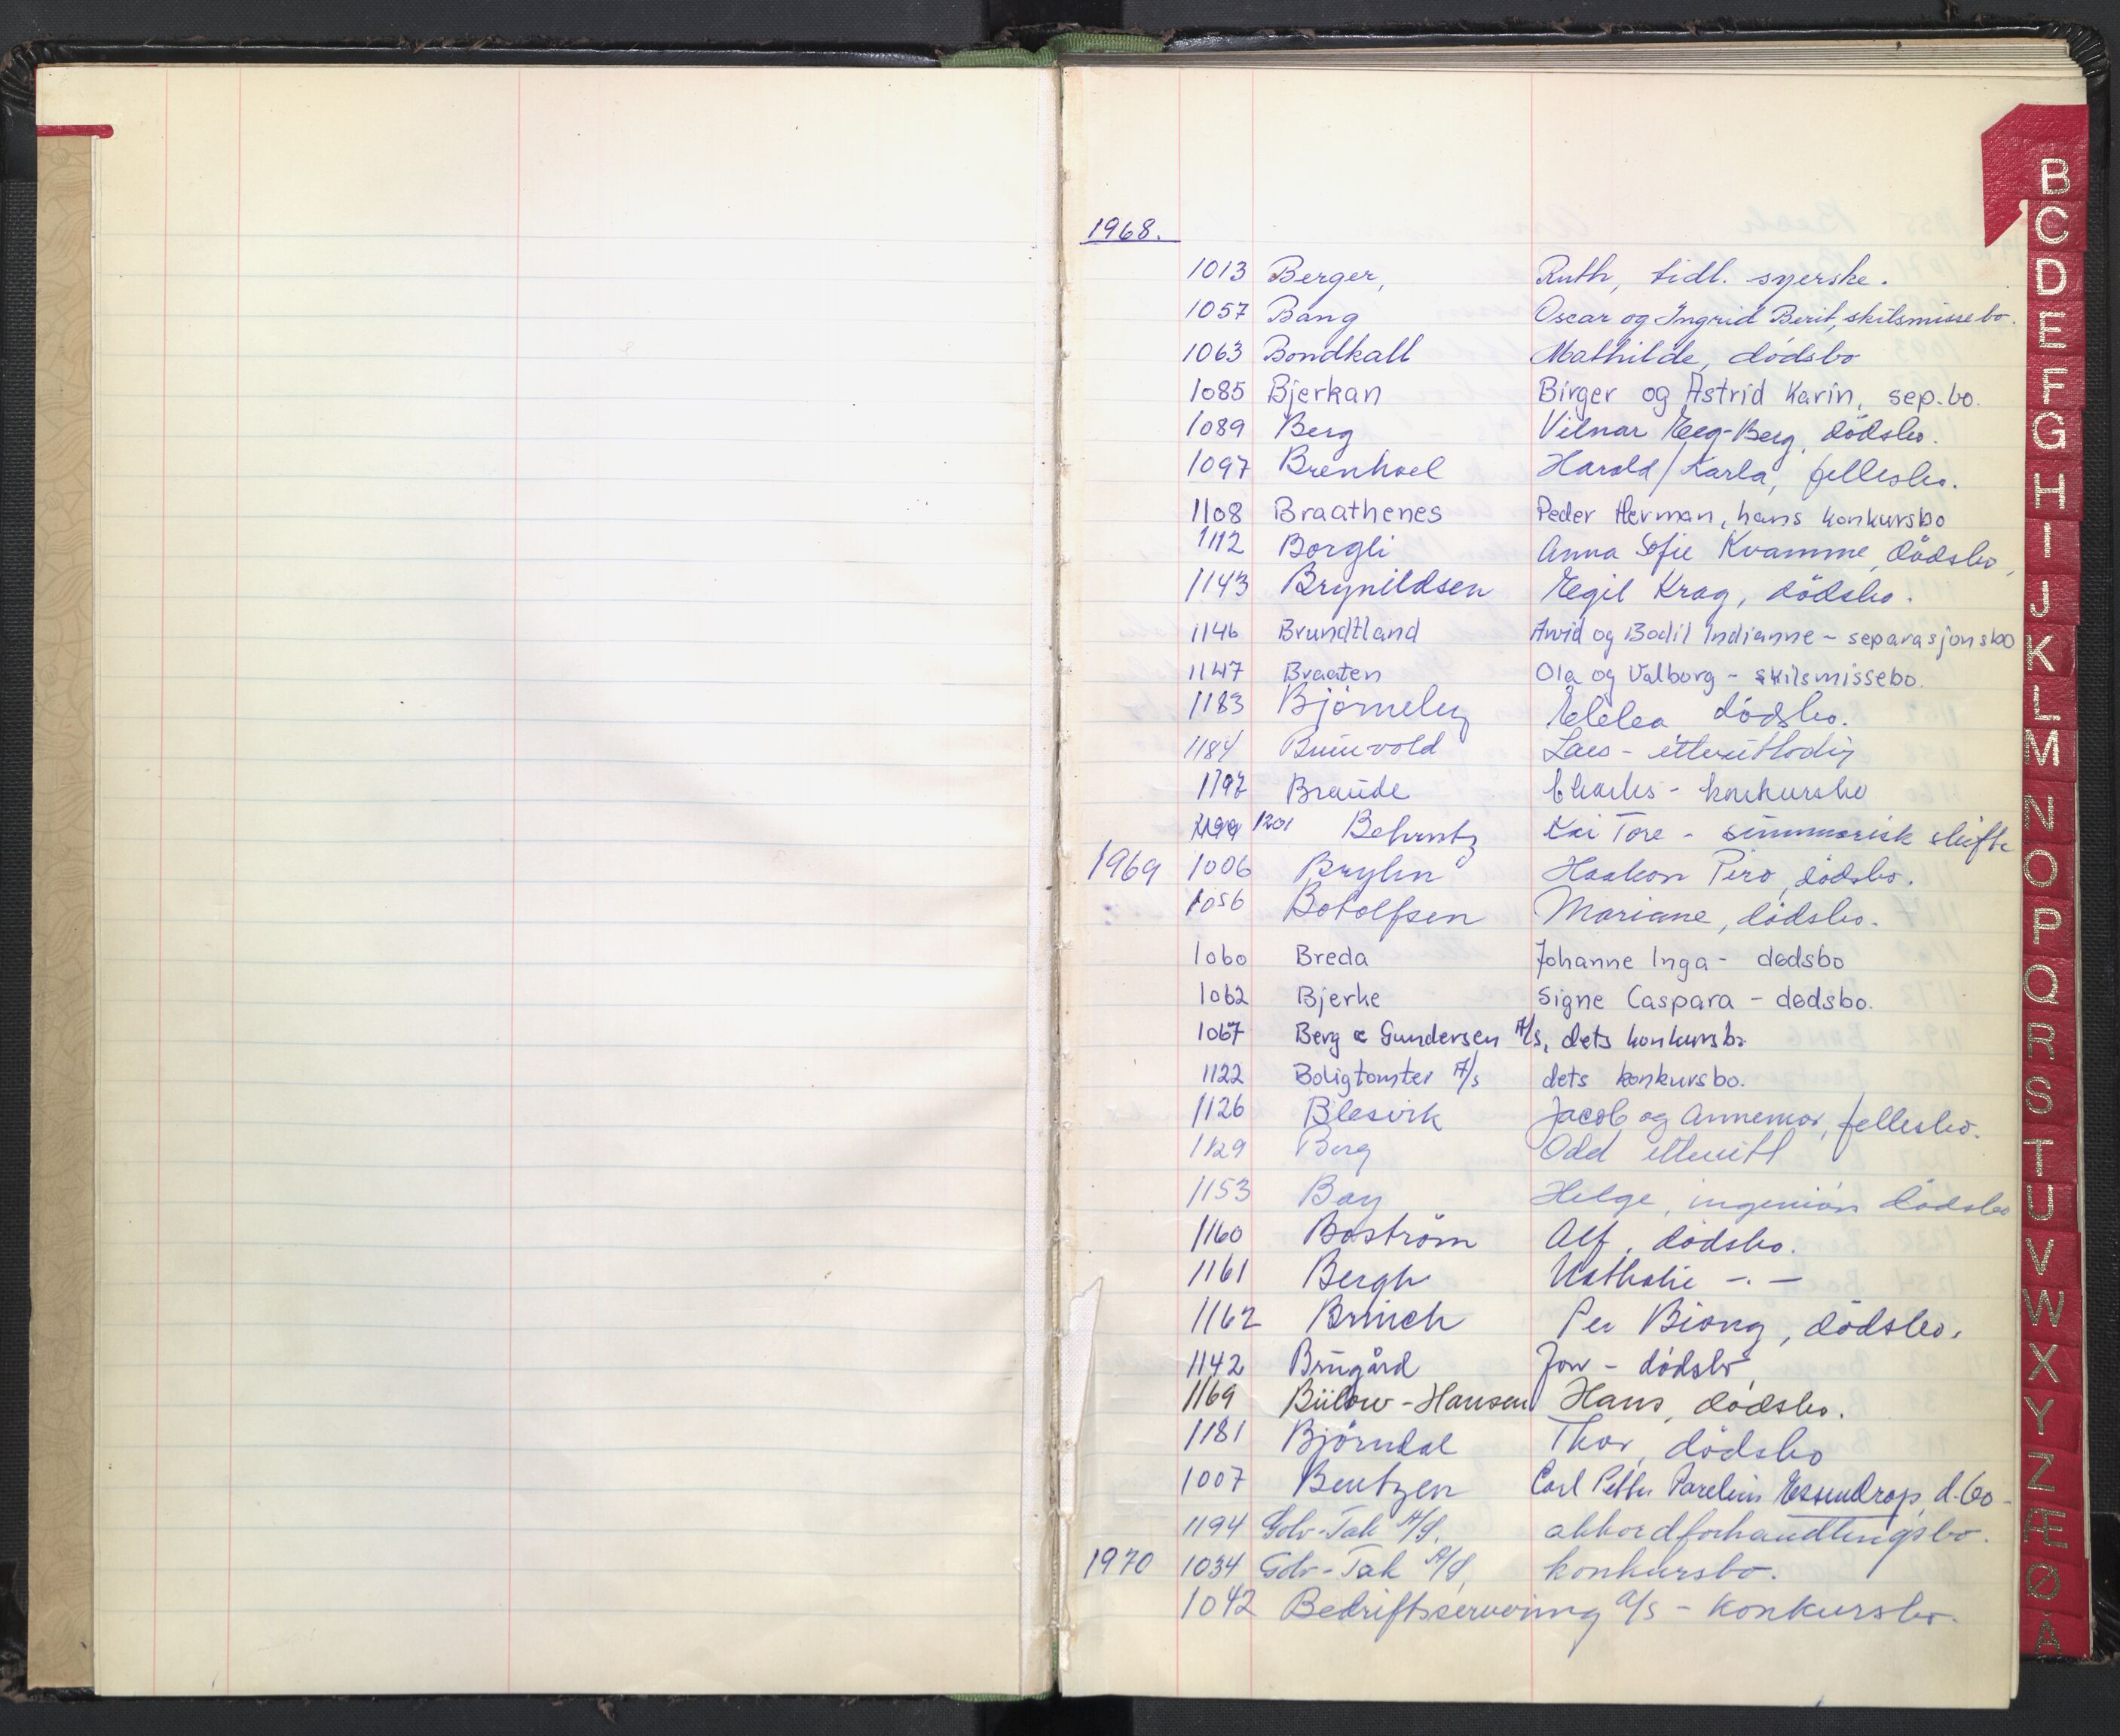 1968.
1013 Berger, Ruth, tidl. syerske.
1057 Bang Oscar og Ingrid Berit, skilsmissebo.
1063 Bondkall Mathilde, dödsbo
1085 Bjerkan Birger og Astrid Karin, sep.bo.
1089 Berg Vilnar Eeg-Berg, dödsbo.
1097 Brenhoel Harald/Karla, fellesbo.
1108 Braathenes Peder Herman, hans konkursbo
1112 Borgli Anna Sofie Kvamme, dödsbo,
1143 Brynildsen Egil Krag, dödsbo.
1146 Brundtland Arvid og Bodil Indianne - separasjonsbo
1147 Braaten Ola og Valborg - skilsmissebo.
1183 Björneby dödsbo.
1184
1197 Braude Charles - konkursbo
1199 1201 Behrntz Kai Tore - summarisk skifte
1969 1006 Brylin Haakon Piro, dödsbo.
1056 Botolfsen Mariane, dödsbo.
1060 Breda Johanne Inga - dødsbo
1062 Bjerke Signe Caspara - dødsbo.
1067 Berg & Gundersen A/S, dets konkursbo
1122 Boligtomter A/s dets konkursbo.
1126 Blesvik Jacob og Annemor, fellesbo.
1129 Berg Odd
1153 Bay Helge, ingeniör dödsbo
1160 Boström Alf, dödsbo.
1161 Bergh Nathalie -.-
1162 Brinch Per Biong, dödsbo.
1142 Brugård Jon - dödsbo
1169 Bülow-Hansen Hans, dödsbo.
1181 Björndal Thor, dödsbo
1007 Bentzen Carl Petter Parelius Essendrop, d.bo-
1194 Golv-Tak A/S, akkordforhandlingsbo.
1970 1034 Golv-Tak A/S, konkursbo.
1042 Bedriftsservering a/s - konkursbo.
B
C
D
E
F
G
H
I
J
K
L
M
N
O
P
Q
R
S
T
U
V
W
X
Y
Z
Æ
Ø
Å